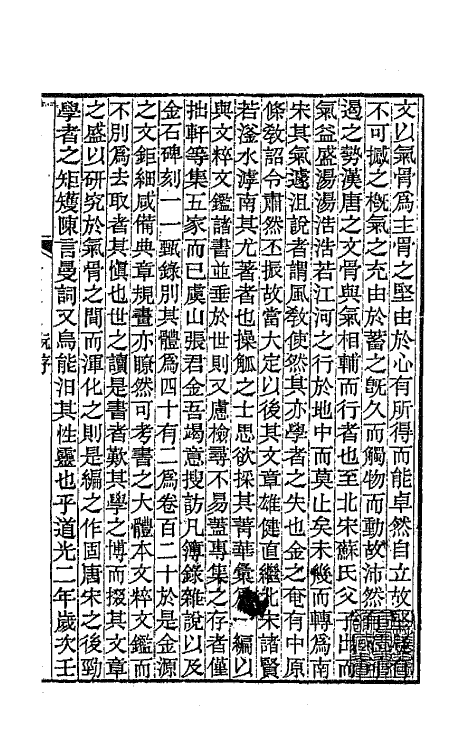 文以氣骨爲主骨之堅由於心有所得而能卓然自立故堅確有
不可撼之槪氣之充由於蓄之旣久而觸物而動故沛然有
遏之勢漢唐之文骨與氣相輔而行者也至北宋蘇氏父子出而
氣益盛湯湯浩浩若江河之行於地中而莫止矣未幾而轉爲南
宋其氣遽沮說者謂風敎使然其亦學者之失也金之奄有中原
條敎詔令肅然丕振故當大定以後其文章雄健直繼北宋諸賢
若滏水滹南其尤著者也操觚之士思欲採其菁華彙 一編以
與文粹文鑑諸書並垂於世則又慮檢尋不易蓋專集之存者僅
拙軒等集五家而已虞山張君金吾竭意搜訪凡簿錄雜說以及
金石碑刻一一甄錄別其體爲四十有二爲卷百二十於是金源
之文鉅細咸備典章規畫亦瞭然可考書之大體本文粹文鑑而
不別爲去取者其愼也世之讀是書者歎其學之博而掇其文章
之盛以硏究於氣骨之間而渾化之則是編之作固唐宋之後勁
學者之矩矱陳言曼詞又烏能汨其性靈也乎道光二年歲次壬
阮序